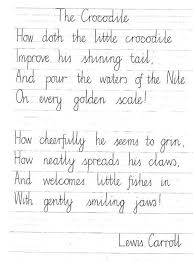 The Crocodile
How doth the little crocodile
Improve his shining tail,
And pour the waters of the Nile
On every golden scale!
How cheerfully he seems to grin,
How neatly spreads his claws,
And welcomes little fishes in
With gently smiling jaws!
Lewis Carroll